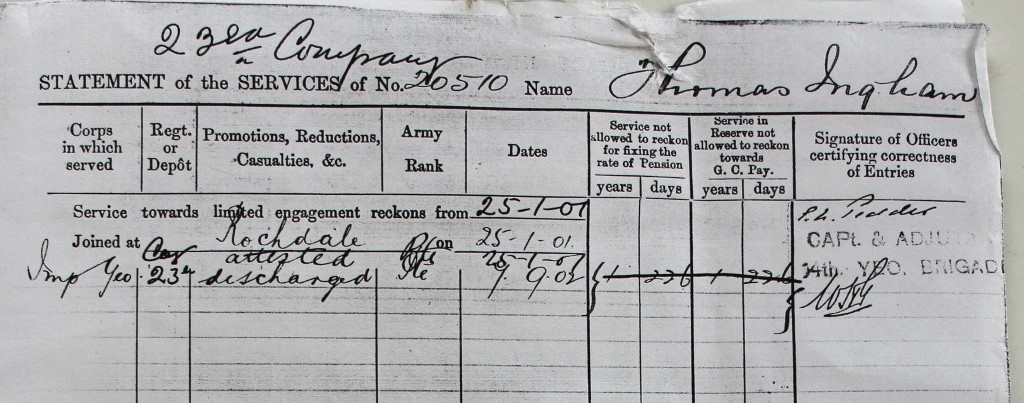 23rd Company
STATEMENT of the SERVICES of No. 20510 Name Thomas Ingham
Corps in which served
Regt. or Depôt
Promotions, Reductions, Casualties, &c.
Army Rank
Dates
Service not allowed to reckon for fixing the rate of Pension
years days
Service in Reserve not allowed to reckon towards G. C. Pay.
years days
Signature of Officers certifying correctness of Entries
Service towards limited engagement reckons from 25-1-01
Joined at Rochdale on 25-1-01.
attested 25-1-01
CAPt. & ADJUTA
Imp Yeo 23rd discharged Pte 7 9.02 1 226 1 226
14th. YEO. BRIGADE